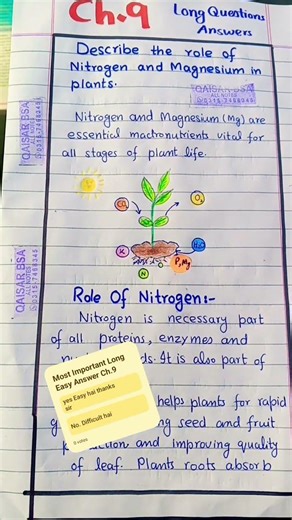 Ch.9
Long Questions
Answers
Describe the role of
Nitrogen and Magnesium in
plants.
QAISAR BSA
ALL NOTES
0315-7488345
Nitrogen and Magnesium (Mg) are
essential macronutrients vital for
all stages of plant life.
QAISAR BSA
ALL NOTES
0315-7488345
CO₂
O₂
QAISAR BSA
ALL NOTES
0315-7488345
K
H₂O
N
P, Mg
Role Of Nitrogen:-
Nitrogen is necessary part
of all proteins, enzymes and
ds. It is also part of
helps plants for rapid
ng seed and fruit
and improving quality
of leaf. Plants roots absorb
Most Important Long
Easy Answer Ch.9
yes Easy hai thanks
sir
No. Difficult hai